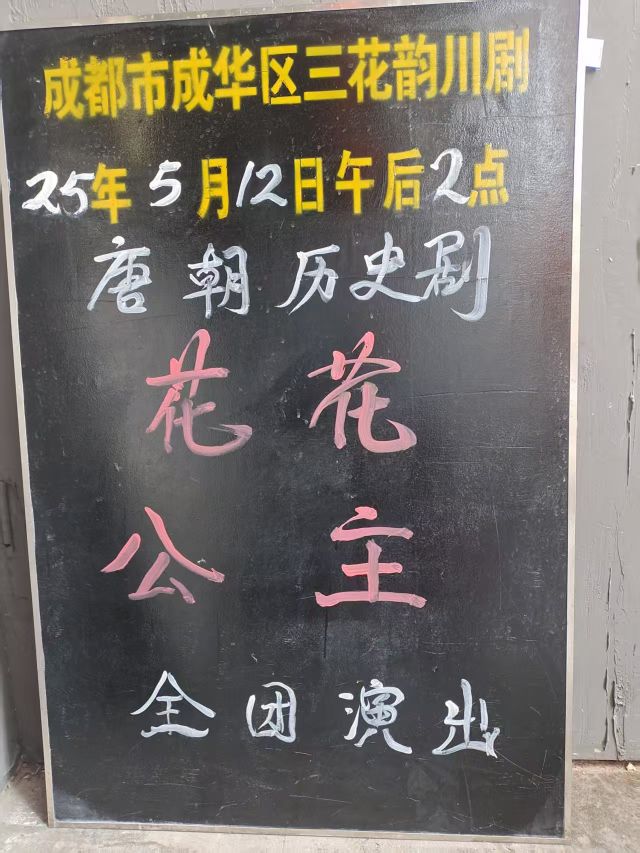 成都市成华区三花韵川剧
25年5月12日午后2点
唐朝历史剧
花花
公主
全团演出